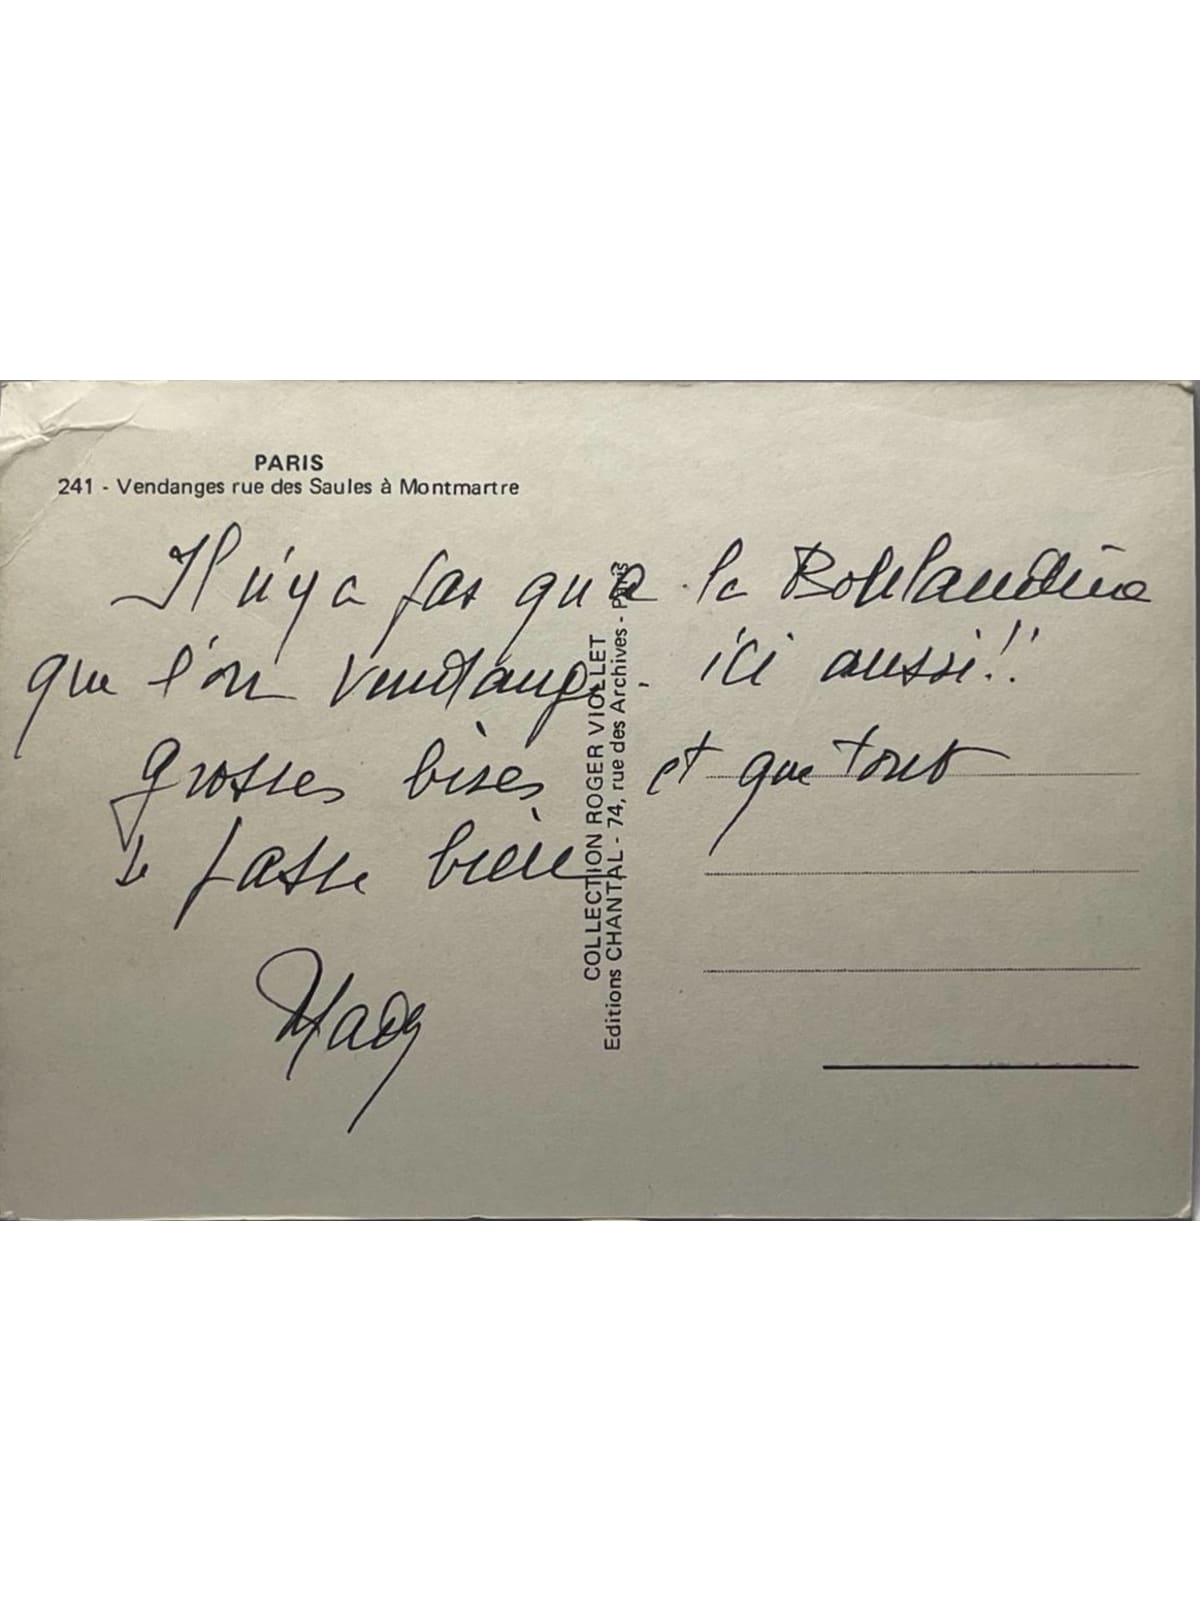 PARIS
241 - Vendanges rue des Saules à Montmartre
Il n'y a pas qu'a la
que l'on vendange. ici aussi!!
grosses bises et que tout
se passe bien
Mady
COLLECTION ROGER VIOLLET
Editions CHANTAL - 74, rue des Archives - PARIS